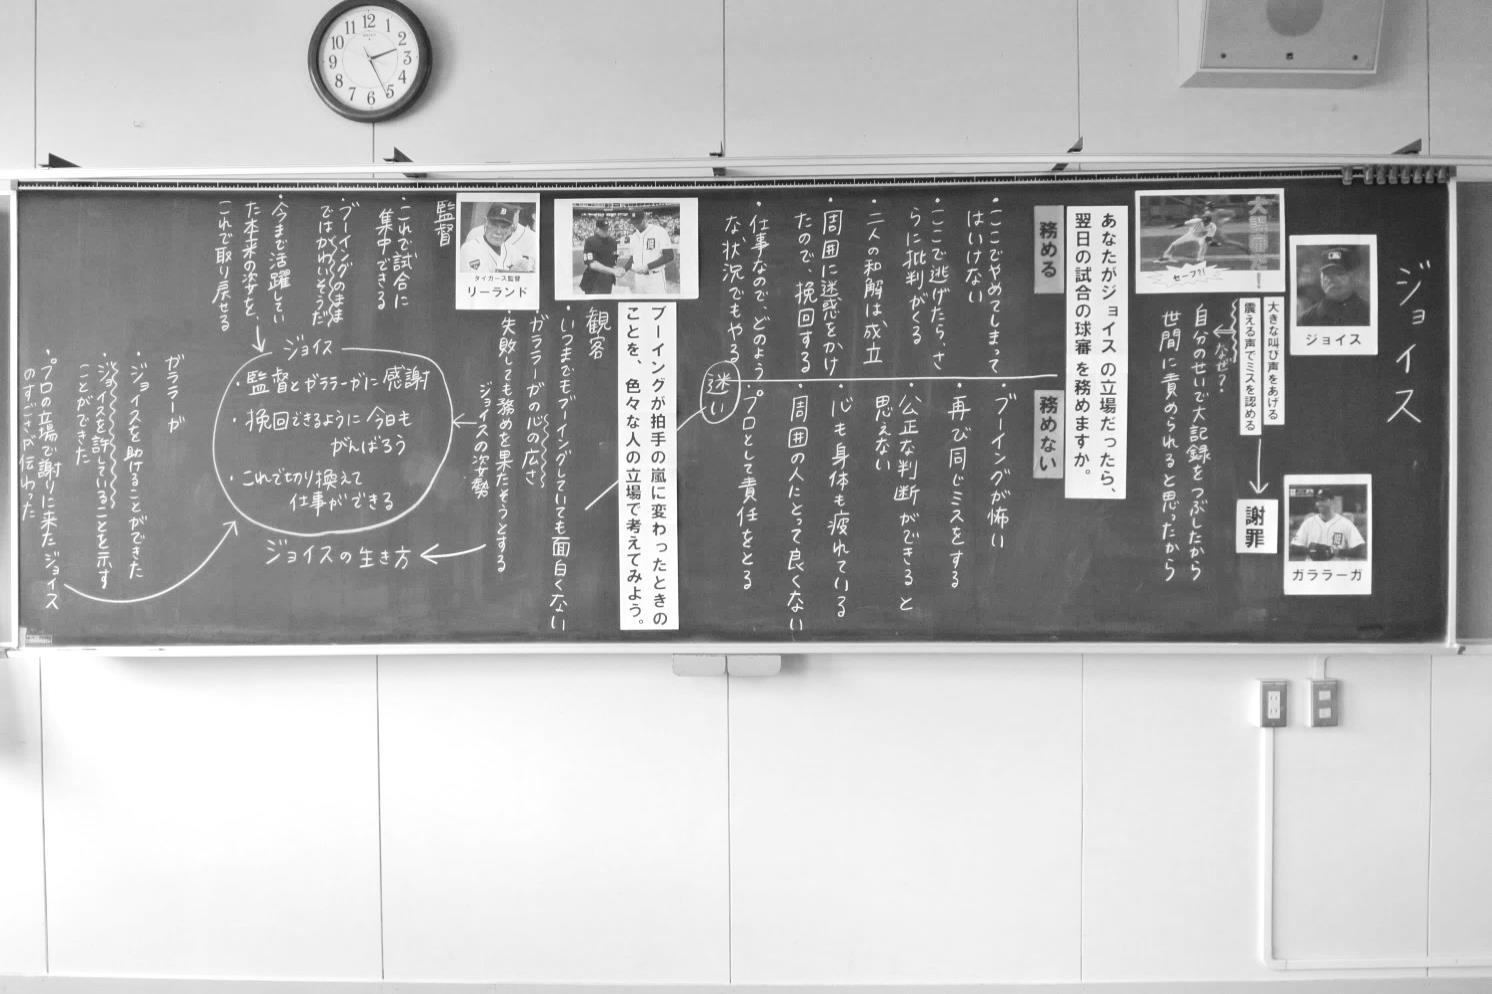 ジョイス
ジョイス
ガララーガ
大きな叫び声をあげる
震える声でミスを認める
謝罪
なぜ?
自分のせいで大記録をつぶしたから
世間に責められると思ったから
セーフ?!
あなたがジョイスの立場だったら、
翌日の試合の球審を務めますか。
務める
・ここでやめてしまって
はいけない
・ここで逃げたら、さ
らに批判がくる
・二人の和解は成立
・周囲に迷惑をかけ
たので、挽回する
・仕事なので、どのよう
な状況でもやる
務めない
・ブーイングが怖い
・再び同じミスをする
・公正な判断ができると
思えない
・心も身体も疲れている
・周囲の人にとって良くない
・プロとして責任をとる
迷い
ブーイングが拍手の嵐に変わったときの
ことを、色々な人の立場で考えてみよう。
観客
・いつまでもブーイングしていても面白くない
・ガララーガの心の広さ
・失敗しても務めを果たそうとする
ジョイスの姿勢
タイガース監督
リーランド
監督
・これで試合に
集中できる
・ブーイングのまま
ではかわいそうだ
・今まで活躍してい
た本来の姿を、
これで取り戻せる
ジョイス
・監督とガララーガに感謝
・挽回できるように今日も
がんばろう
・これで切り換えて
仕事ができる
ジョイスの生き方
ガララーガ
・ジョイスを助けることができた
・ジョイスを許していることを示す
ことができた
・プロの立場で謝りに来たジョイス
のすごさが伝わった
12
1
2
3
4
5
6
7
8
9
10
11